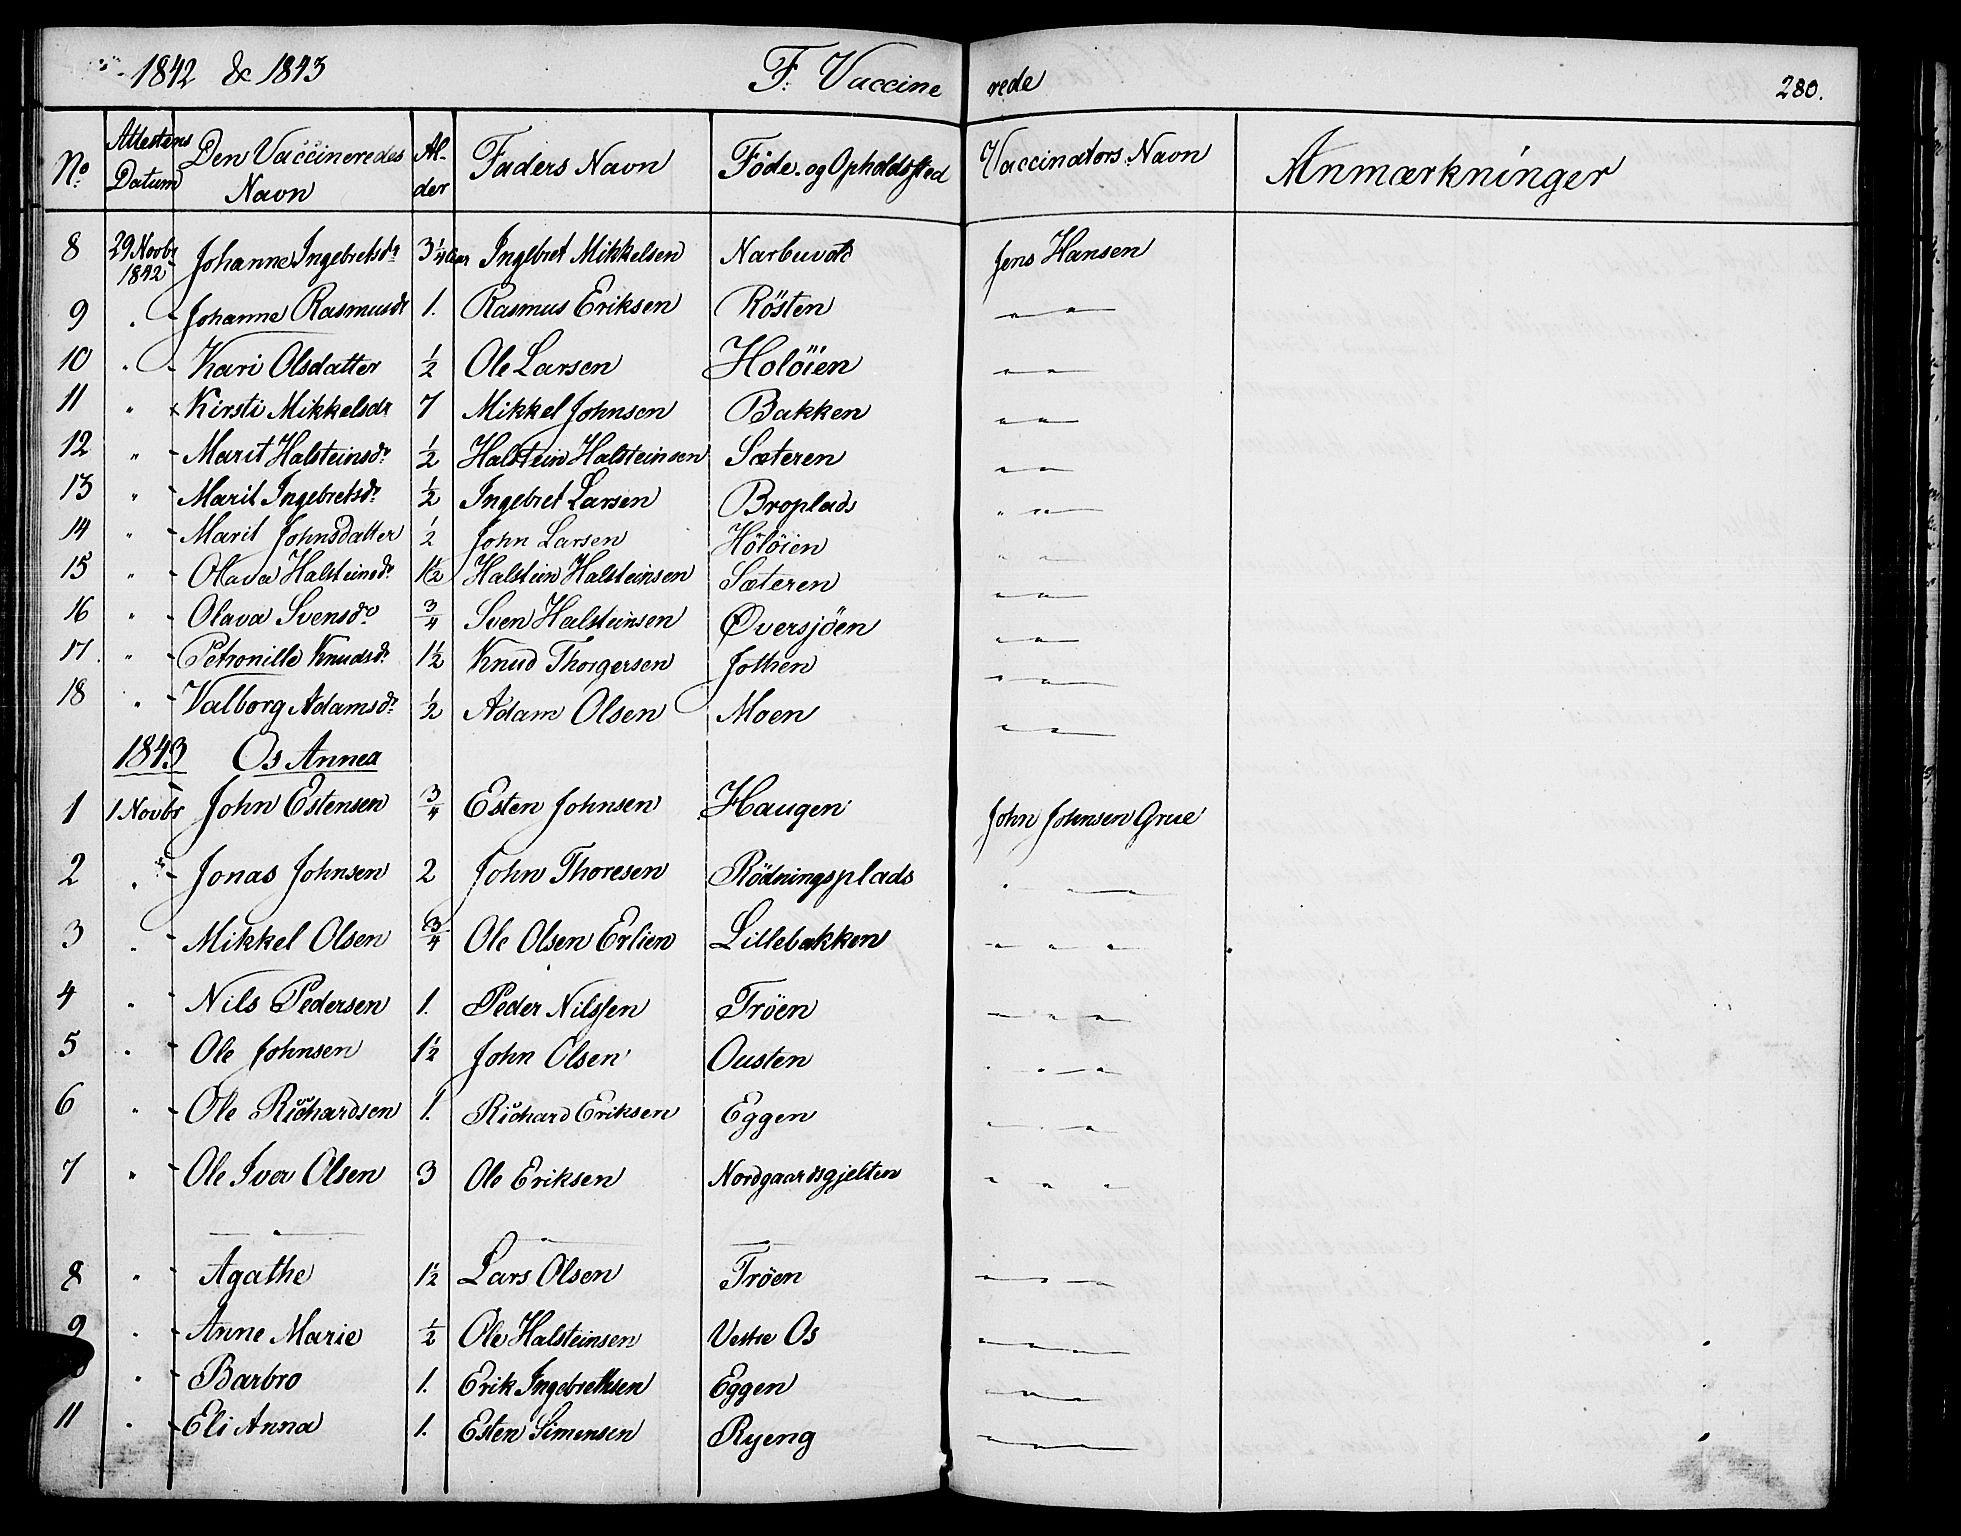 1842 & 1843 F. Vaccine rede 280.
No. Attestens Datum Den Vaccineredes Navn Al- der Faders Navn Føde- og Opholdssted Vaccinators Navn Anmærkninger
8 29 Novbr 1842 Johanne Ingebretsdr 3 1/4 Aar Ingebret Mikkelsen Narbuvold Jens Hansen
9 " - Johanne Rasmusdr 1. Rasmus Eriksen Rösten " "
10 " - Kari Olsdatter 1/2 Ole Larsen Holöien " "
11 " x Kirsti Mikkelsdr 7 Mikkel Johnsen Bakken " "
12 " - Marit Halsteinsdr 1/2 Halstein Halsteinsen Sæteren " "
13 " - Marit Ingebretsdr 1/2 Ingebret Larsen Broplads " "
14 " - Marit Johnsdatter 1/2 John Larsen Holöien " "
15 " - Olava Halsteinsdr 1 1/2 Halstein Halsteinsen Sæteren " "
16 " - Olava Svensdr 3/4 Sven Halsteinsen Øversjöen " "
17. " - Petronille Knudsdr 1 1/2 Knud Thorgersen Jothen " "
18 " - Valborg Adamsdr 1/2 Adam Olsen Moen " "
1843 Os Annea
1 1 Novbr John Estensen 3/4 Esten Johnsen Haugen John Johnsen Grue
2 " - Jonas Johnsen 2 John Thoresen Rödningsplads " " "
3 " - Mikkel Olsen 3/4 Ole Olsen Erlien Lillebakken " " "
4 " - Nils Pedersen 1. Peder Nilssen Tröen " " "
5 " - Ole Johnsen 1 1/2 John Olsen Ousten " " "
6 " - Ole Richardsen 1. Richard Eriksen Eggen " " "
7 " - Ole Iver Olsen 3 Ole Eriksen Nordgaardsgjelten " " "
8 " - Agathe 1 1/2 Lars Olsen Tröen " " "
9 " - Anne Marie 1/2 Ole Halsteinsen Vestre Os " " "
" - Barbro 1. Erik Ingebrethsen Eggen " " "
11 " - Eli Anna 1. Esten Simensen Ryeng " " "